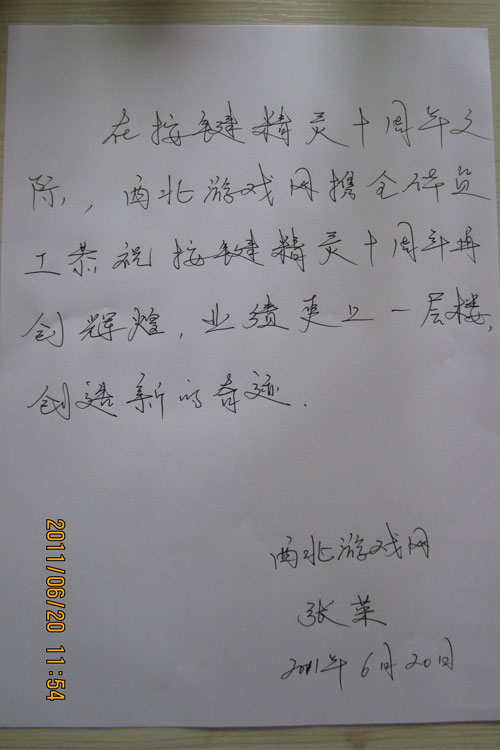 在按键精灵十周年之
际，西北游戏网携全体员
工恭祝按键精灵十周年再
创辉煌，业绩更上一层楼，
创造新的奇迹.
西北游戏网
张荣
2011年6月20日
2011/06/20 11:54